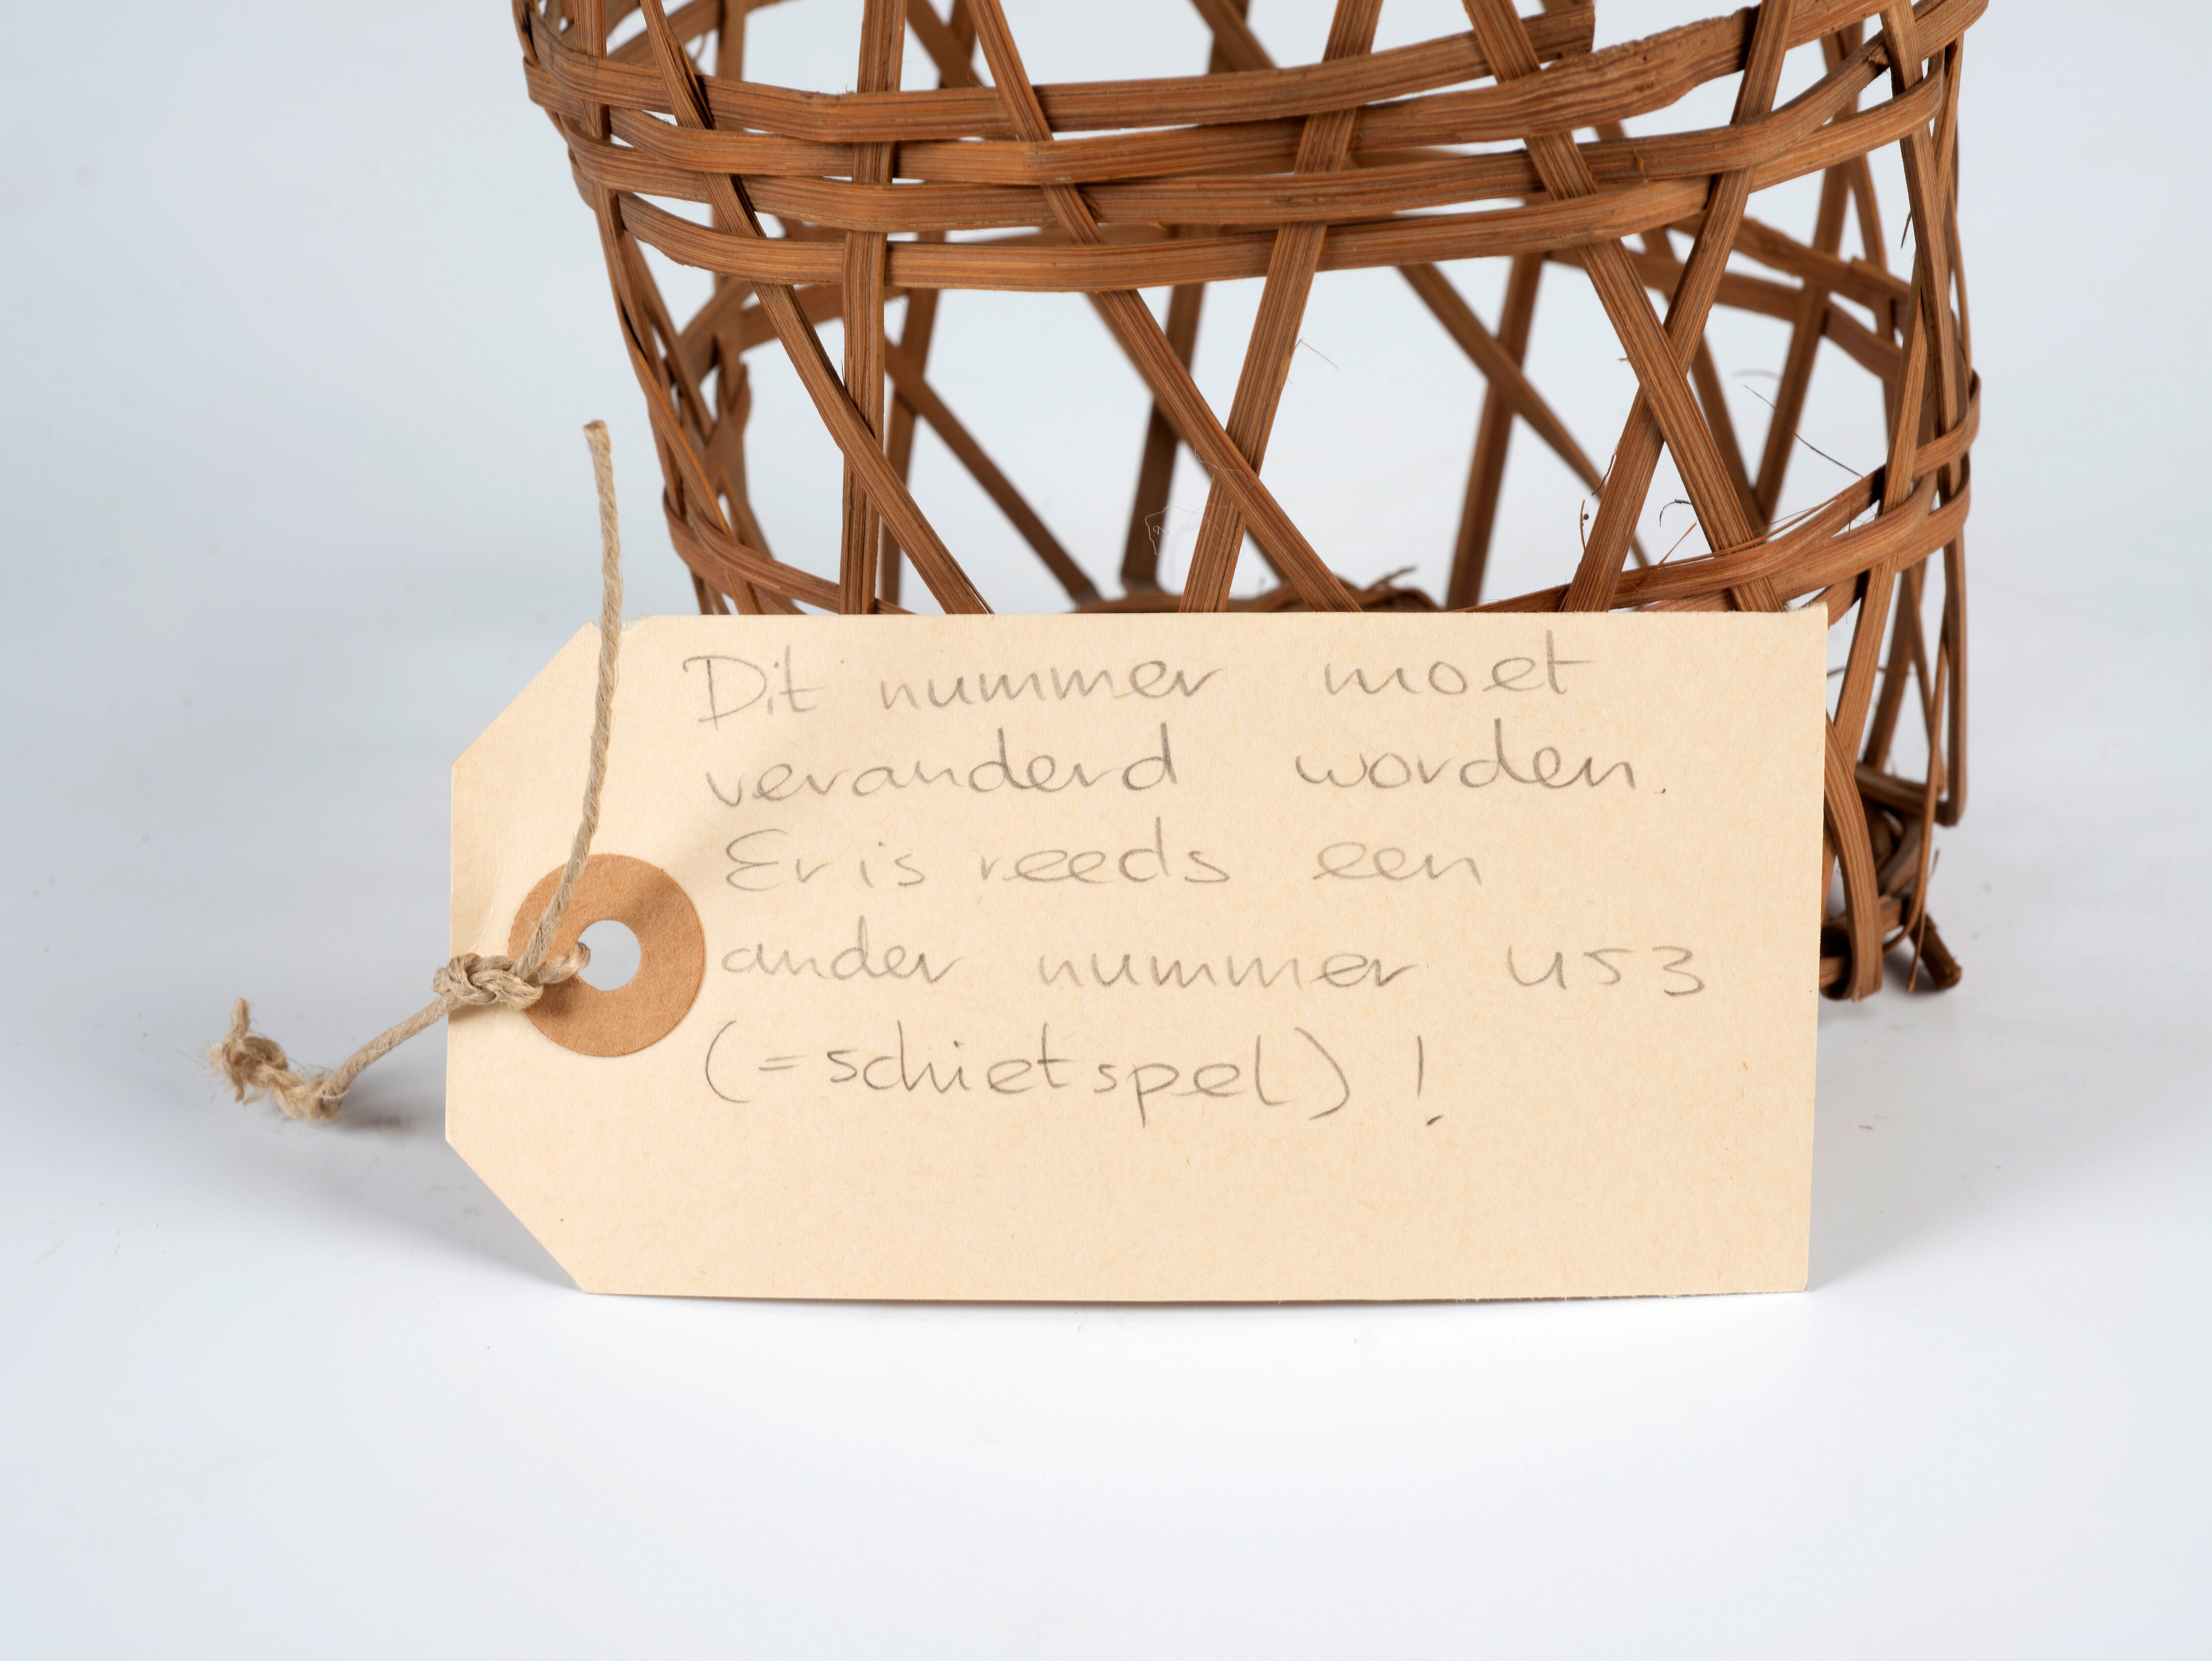 Dit nummer moet
veranderd worden.
Er is reeds een
ander nummer U53
(=schietspel)!